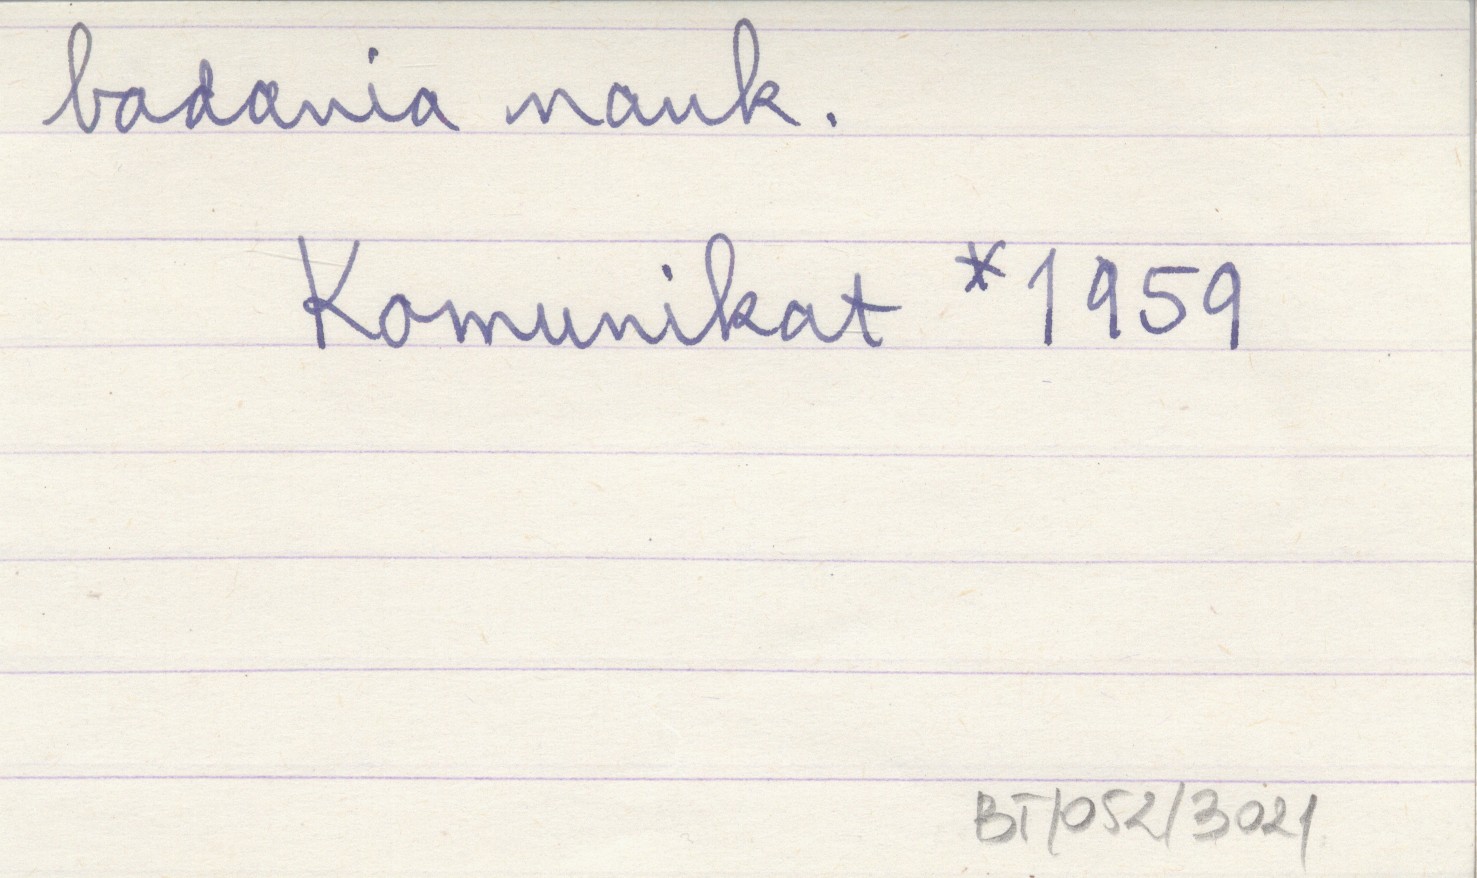 badania nauk.
Komunikat *1959
BT/052/3021